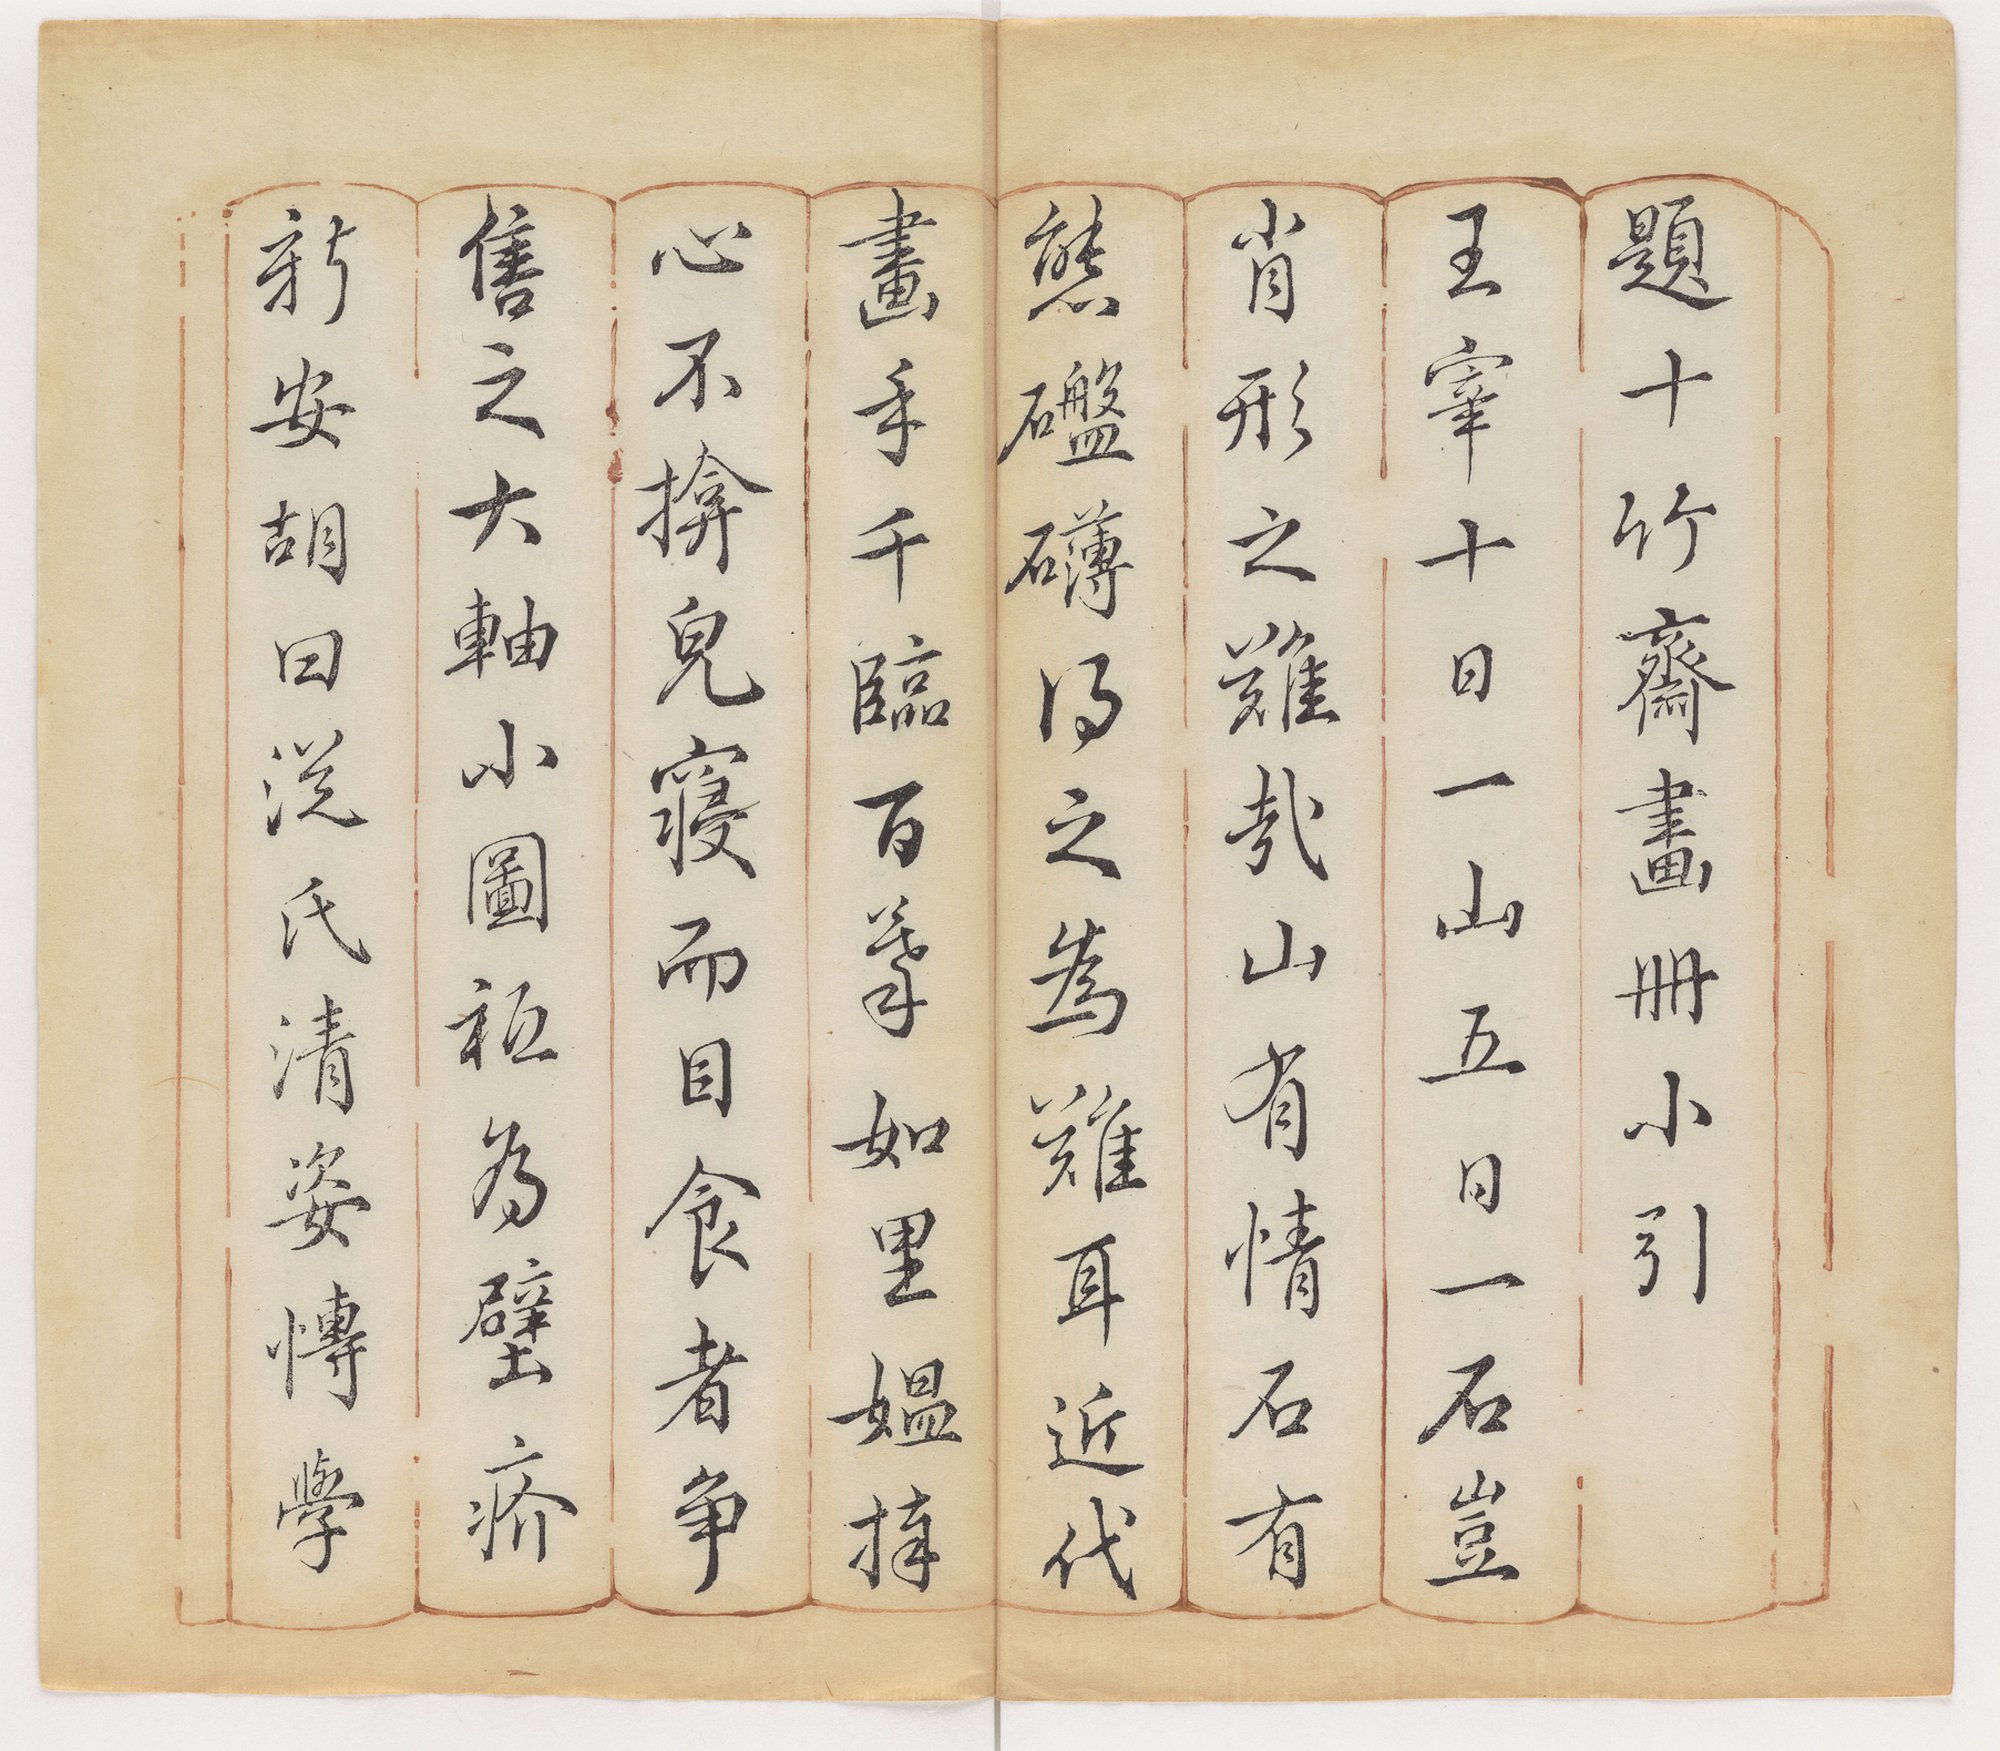 題十竹齋畫冊小引
王宰十日一山五日一石豈
肖形之難哉山有情石有
態礚礴得之為難耳近代
畫手千臨百摹如里媼捧
心不揜皃寢而目食者争
售之大軸小圖祗為壁疥
新安胡曰從氏清姿慱學